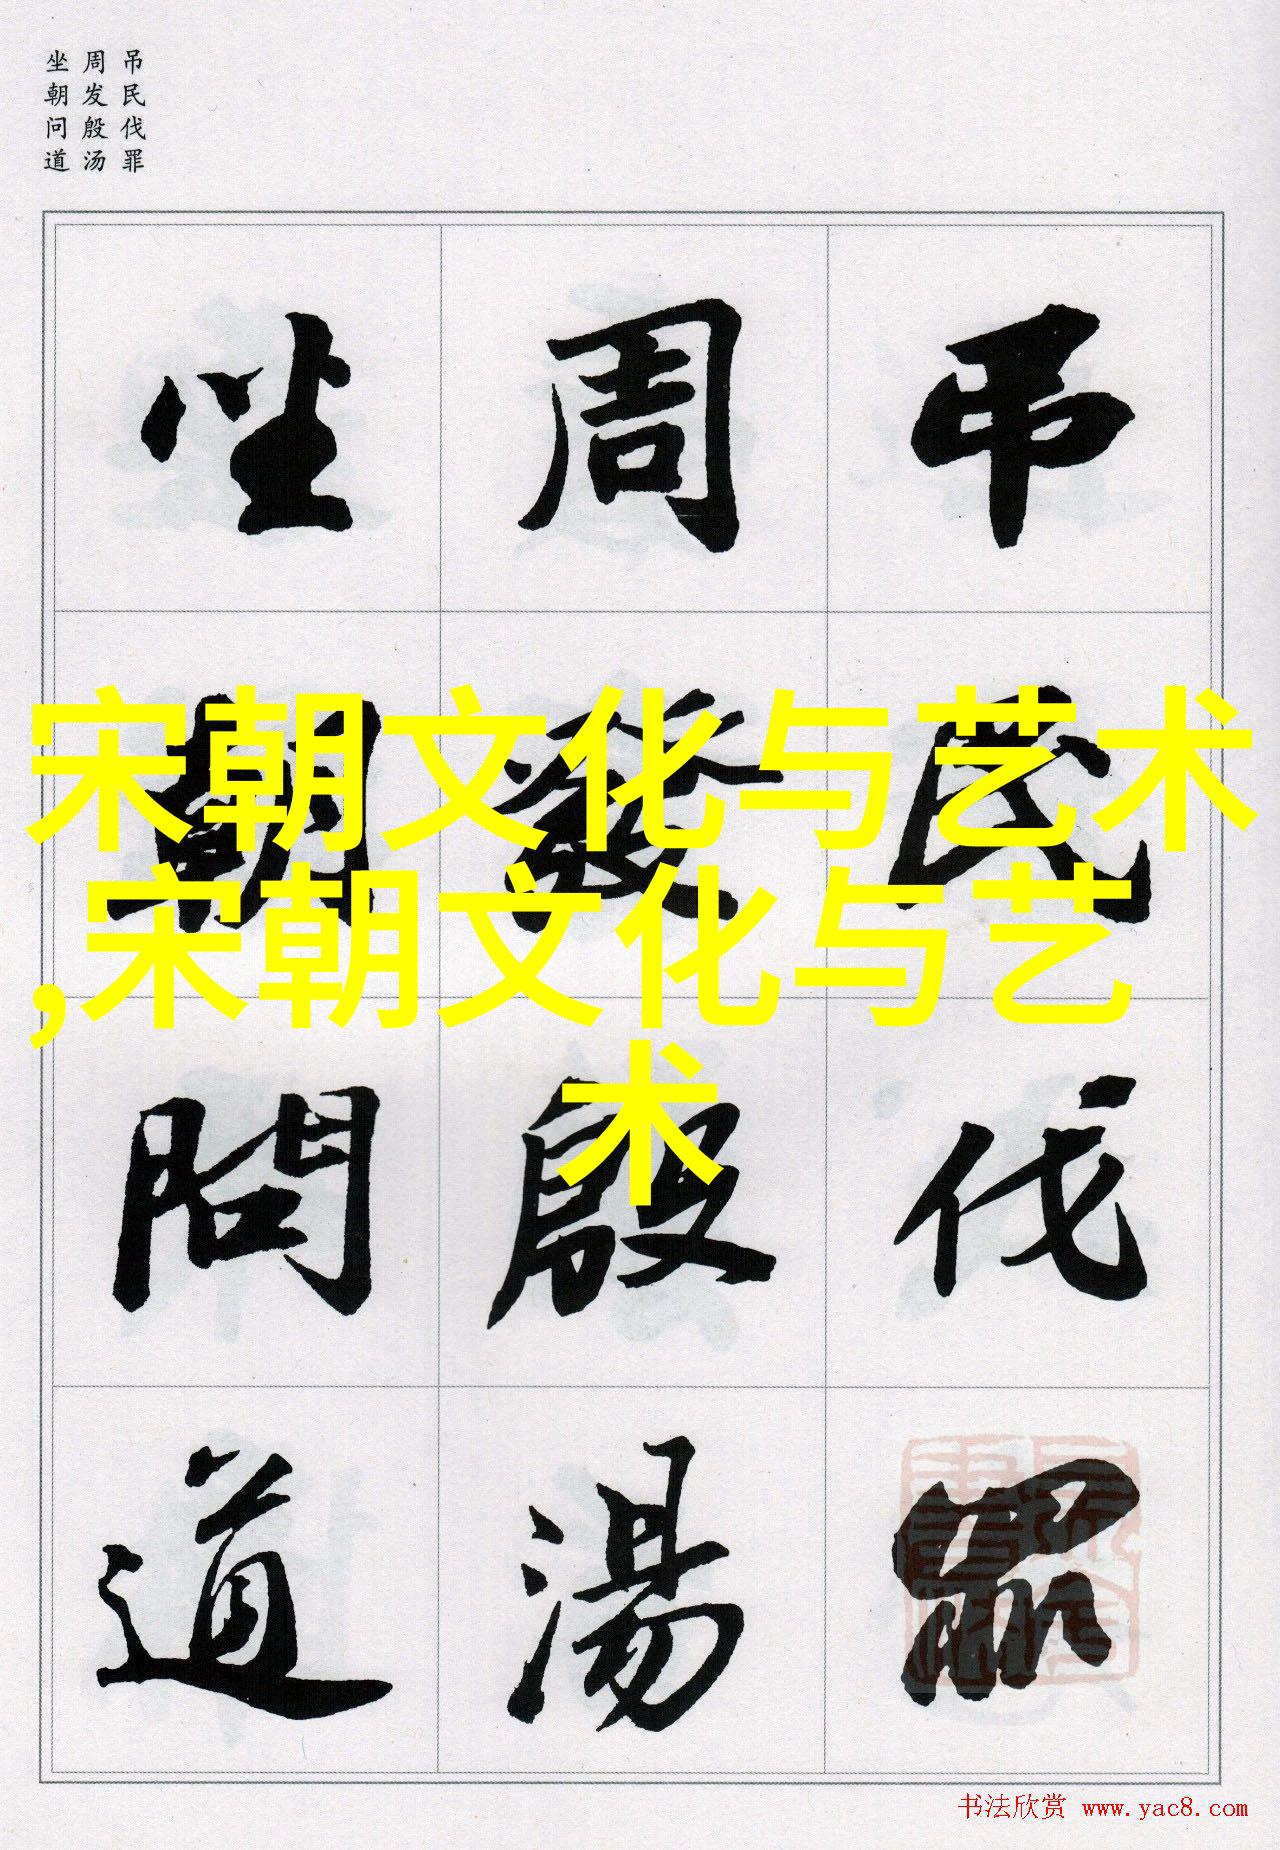 吊民伐罪
周发殷汤
坐朝问道
吊民伐罪
周發殷湯
坐朝問道
宋朝文化与艺术
,宋朝文化与艺
术
书法欣赏 www.yac8.com